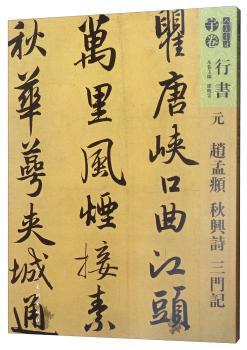 子卷
行書
元
趙孟頫 秋興詩 三門記
瞿唐峽口曲江頭
萬里風煙接素
秋華萼夾城通